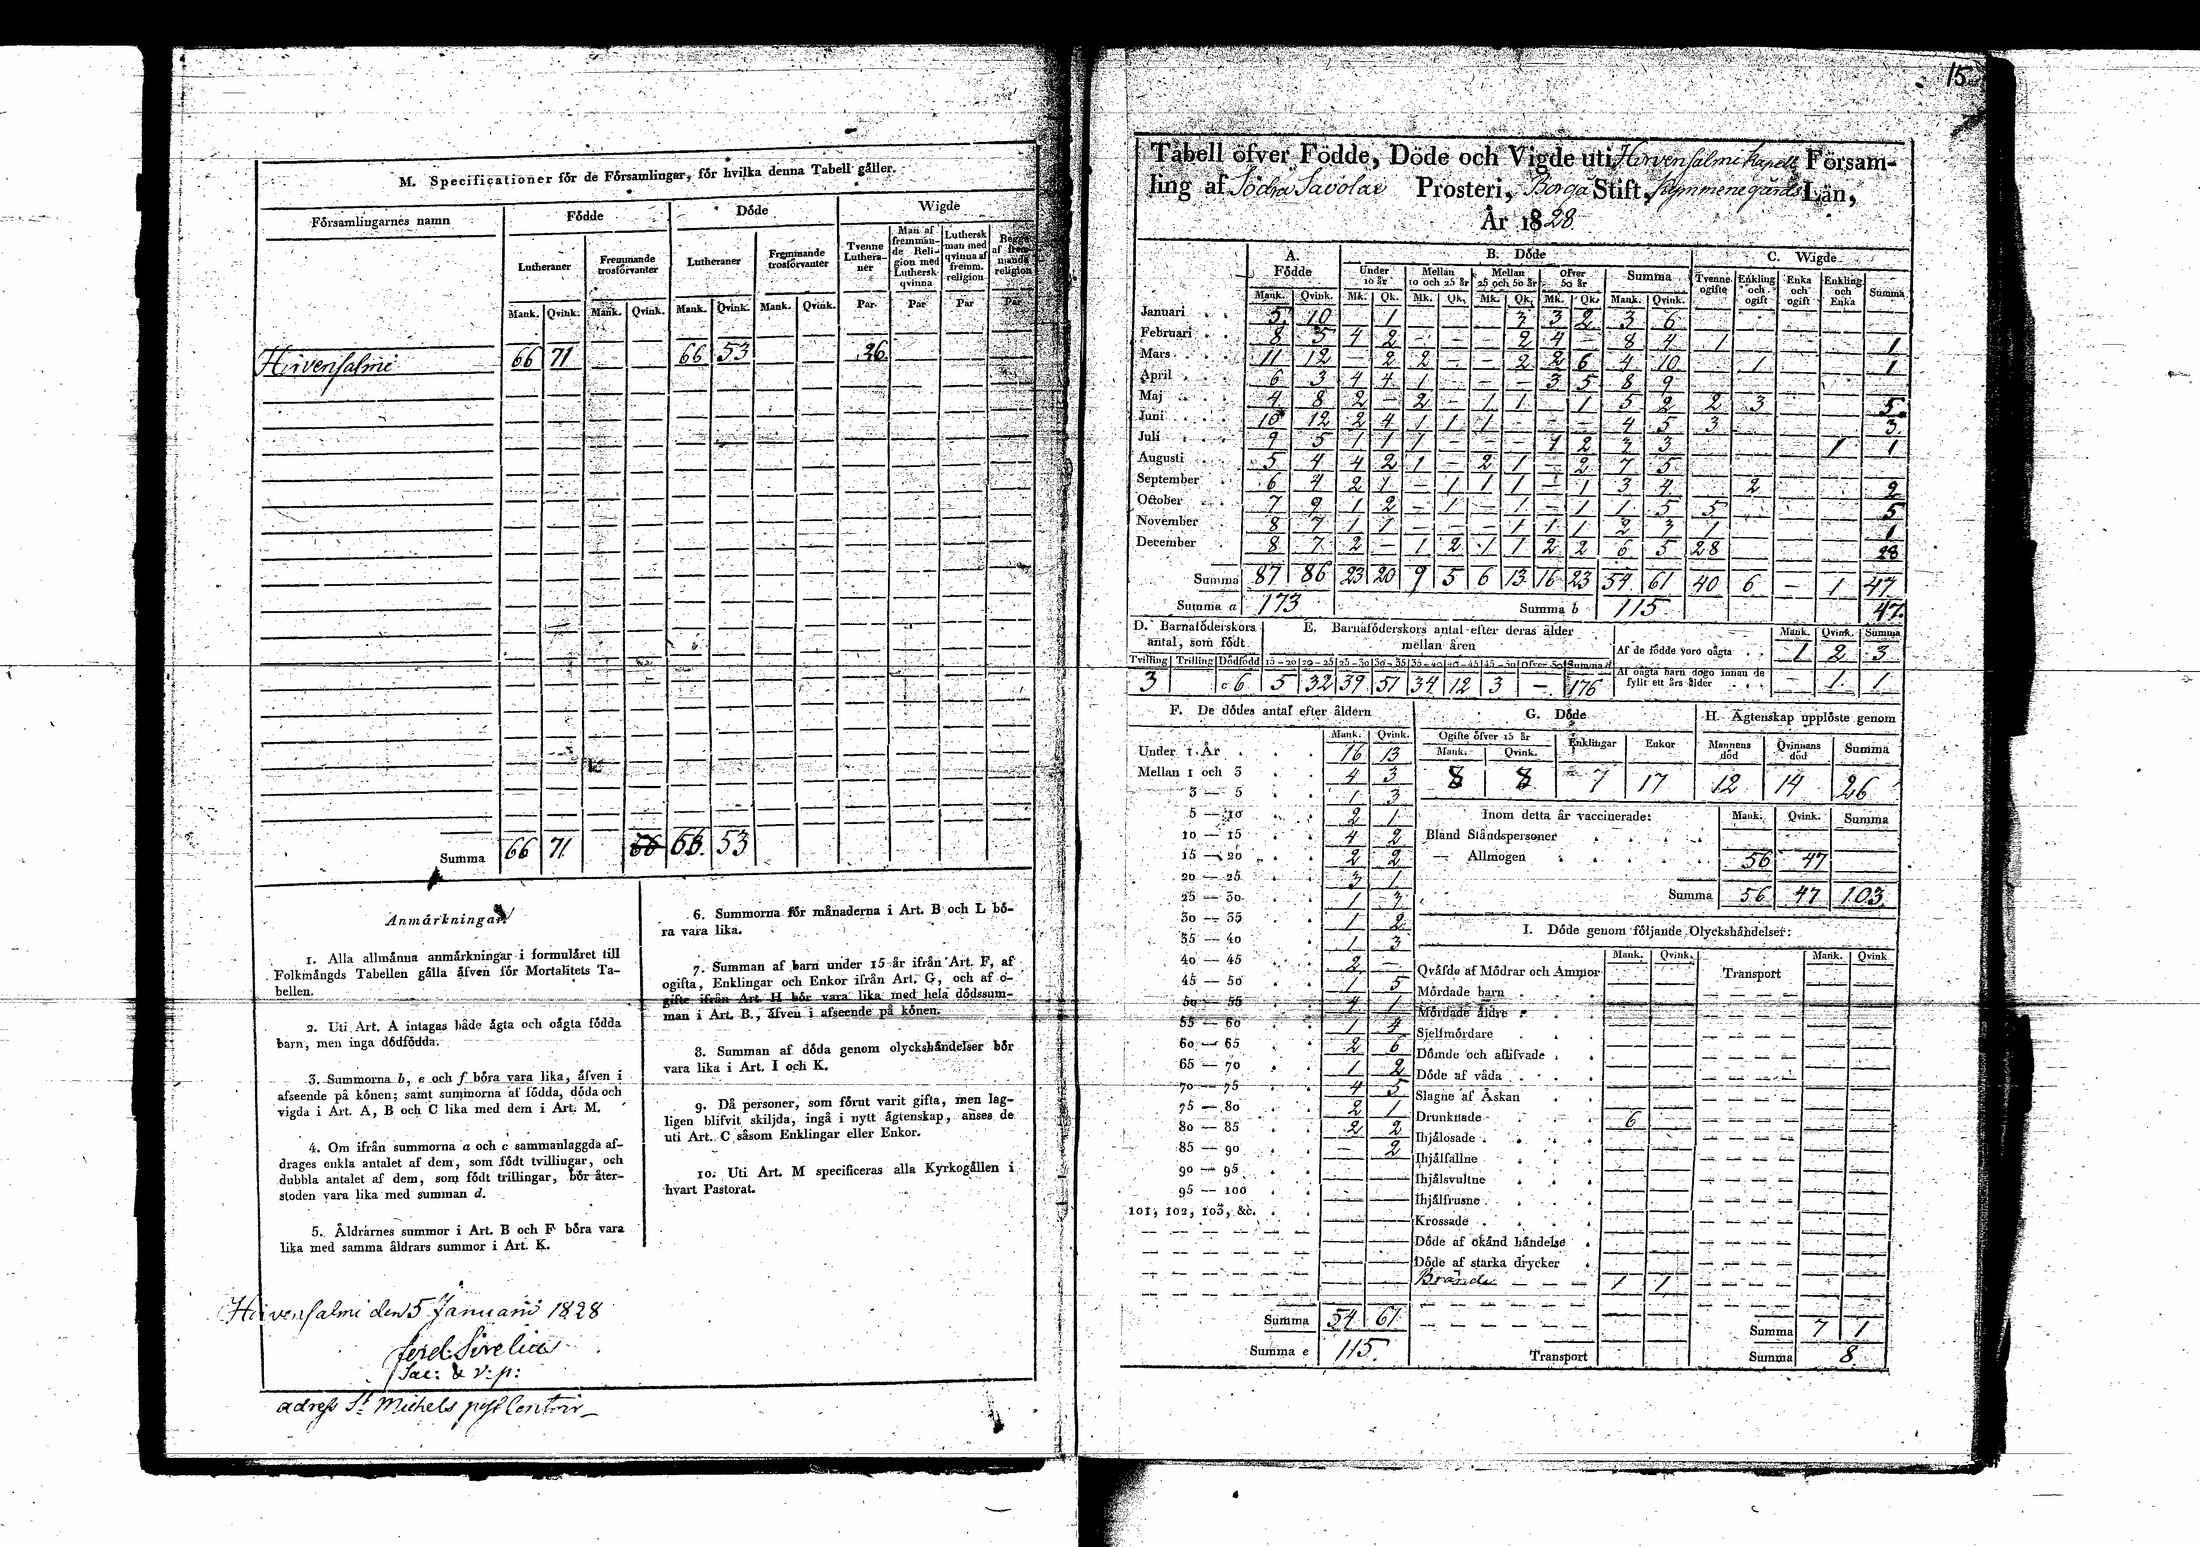 15
M. Specificationer för de Församlingar, för hvilka denna Tabell gäller.
Församlingarnes namn | Födde | Döde | Wigde
Lutheraner | Fremmande trosförvanter | Lutheraner | Fremmande trosförvanter | Tvenne Lutheraner | Man af fremmande Religion med Luthersk qvinna | Luthersk man med qvinna af fremm. religion | Begge af fremmande religion
Mank. | Qvink. | Mank. | Qvink. | Mank. | Qvink. | Mank. | Qvink. | Par | Par | Par | Par
Hirvensalmi | 66 | 71 | | | 66 | 53 | | | 26
Summa | 66 | 71 | | | 66 | 53
Anmärkningar
1. Alla allmänna anmärkningar i formuläret till
Folkmängds Tabellen gälla äfven för Mortalitets Ta-
bellen.
2. Uti Art. A intagas både ägta och oägta födda
barn, men inga dödfödda.
3. Summorna b, e och f böra vara lika, äfven i
afseende på könen; samt summorna af födda, döda och
vigda i Art. A, B och C lika med dem i Art. M.
4. Om ifrån summorna a och c sammanlaggda af-
drages enkla antalet af dem, som födt tvillingar, och
dubbla antalet af dem, som födt trillingar, bör åter-
stoden vara lika med summan d.
5. Åldrarnes summor i Art. B och F böra vara
lika med samma åldrars summor i Art. K.
6. Summorna för månaderna i Art. B och L bö-
ra vara lika.
7. Summan af barn under 15 år ifrån Art. F, af
ogifta, Enklingar och Enkor ifrån Art. G, och af o-
gifte ifrån Art. H bör vara lika med hela dödssum-
man i Art. B., äfven i afseende på könen.
8. Summan af döda genom olyckshändelser bör
vara lika i Art. I och K.
9. Då personer, som förut varit gifta, men lag-
ligen blifvit skiljda, ingå i nytt ägtenskap, anses de
uti Art. C såsom Enklingar eller Enkor.
10. Uti Art. M specificeras alla Kyrkogällen i
hvart Pastorat.
Hirvensalmi den 5 Januarii 1828
Sac: & v: p:
adress St Michels post Contoir
Tabell öfver Födde, Döde och Vigde uti Hirvensalmi kapell Försam-
ling af Södra Savolax Prosteri, Borgå Stift, Kymmenegårds Län,
År 1828
A. Födde | B. Döde | C. Wigde
Under 10 år | Mellan 10 och 25 år | Mellan 25 och 50 år | Öfver 50 år | Summa | Tvenne ogifte | Enkling och ogift | Enka och ogift | Enkling och Enka | Summa
Mank. | Qvink. | Mk. | Qk. | Mk. | Qk. | Mk. | Qk. | Mk. | Qk. | Mank. | Qvink.
Januari | 5 | 10 | | 1 | | | | 3 | 3 | 2 | 3 | 6
Februari | 8 | 5 | 4 | 2 | - | - | - | 2 | 4 | - | 8 | 4 | 1 | | | | 1
Mars | 11 | 12 | - | 2 | 2 | - | - | 2 | 2 | 6 | 4 | 10 | | 1 | | | 1
April | 6 | 3 | 4 | 4 | 1 | - | - | - | 3 | 5 | 8 | 9
Maj | 4 | 8 | 2 | - | 2 | - | 1 | 1 | - | 1 | 5 | 2 | 2 | 3 | | | 5
Juni | 10 | 12 | 2 | 4 | 1 | 1 | 1 | - | - | - | 4 | 5 | 3 | | | | 3
Juli | 9 | 5 | 1 | 1 | 1 | - | - | - | 1 | 2 | 3 | 3 | | | | 1 | 1
Augusti | 5 | 4 | 4 | 2 | 1 | - | 2 | 1 | - | 2 | 7 | 5
September | 6 | 4 | 2 | 1 | - | 1 | 1 | 1 | - | 1 | 3 | 4 | | 2 | | | 2
October | 7 | 9 | 1 | 2 | - | 1 | - | 1 | - | 1 | 1 | 5 | 5 | | | | 5
November | 8 | 7 | 1 | 1 | - | - | - | 1 | 1 | 1 | 2 | 3 | 1 | | | | 1
December | 8 | 7 | 2 | - | 1 | 2 | 1 | 1 | 2 | 2 | 6 | 5 | 28 | | | | 28
Summa | 87 | 86 | 23 | 20 | 9 | 5 | 6 | 13 | 16 | 23 | 54 | 61 | 40 | 6 | - | 1 | 47
Summa a | 173 | Summa b | 115 | 47
D. Barnaföderskors antal, som födt | E. Barnaföderskors antal efter deras ålder mellan åren | Mank. | Qvink. | Summa
Tvilling | Trilling | Dödfödd | 15-20 | 20-25 | 25-30 | 30-35 | 35-40 | 40-45 | 45-50 | Öfver 50 | Summa d
3 | | c 6 | 5 | 32 | 39 | 51 | 34 | 12 | 3 | - | 176
Af de födde voro oägta | 1 | 2 | 3
Af oägta barn dogo innan de fyllt ett års ålder | - | 1 | 1
F. De dödes antal efter åldern
Mank. | Qvink.
Under 1 År | 16 | 13
Mellan 1 och 3 | 4 | 3
3 — 5 | 1 | 3
5 — 10 | 2 | 1
10 — 15 | 4 | 2
15 — 20 | 2 | 2
20 — 25 | 3 | 1
25 — 30 | 1 | 3
30 — 35 | 1 | 2
35 — 40 | 1 | 3
40 — 45 | 2 | -
45 — 50 | 1 | 5
50 — 55 | 4 | 1
55 — 60 | 1 | 4
60 — 65 | 2 | 6
65 — 70 | 1 | 2
70 — 75 | 4 | 5
75 — 80 | 2 | 1
80 — 85 | 2 | 2
85 — 90 | - | 2
90 — 95
95 — 100
101, 102, 103, &c.
Summa | 54 | 61
Summa e | 115.
G. Döde | H. Ägtenskap upplöste genom
Ogifte öfver 15 år | Enklingar | Enkor | Mannens död | Qvinnans död | Summa
Mank. | Qvink.
8 | 8 | 7 | 17 | 12 | 14 | 26
Inom detta år vaccinerade: | Mank. | Qvink. | Summa
Bland Ståndspersoner
— Allmogen | 56 | 47
Summa | 56 | 47 | 103
I. Döde genom följande Olyckshändelser:
Mank. | Qvink. | Transport | Mank. | Qvink
Qväfde af Mödrar och Ammor
Mördade barn
Mördade äldre
Sjelfmördare
Dömde och aflifvade
Döde af våda
Slagne af Åskan
Drunknade | 6
Ihjälosade
Ihjälfallne
Ihjälsvultne
Ihjälfrusne
Krossade
Döde af okänd händelse
Döde af starka drycker
Brände | 1 | 1
Summa | 7 | 1
Transport | Summa | 8